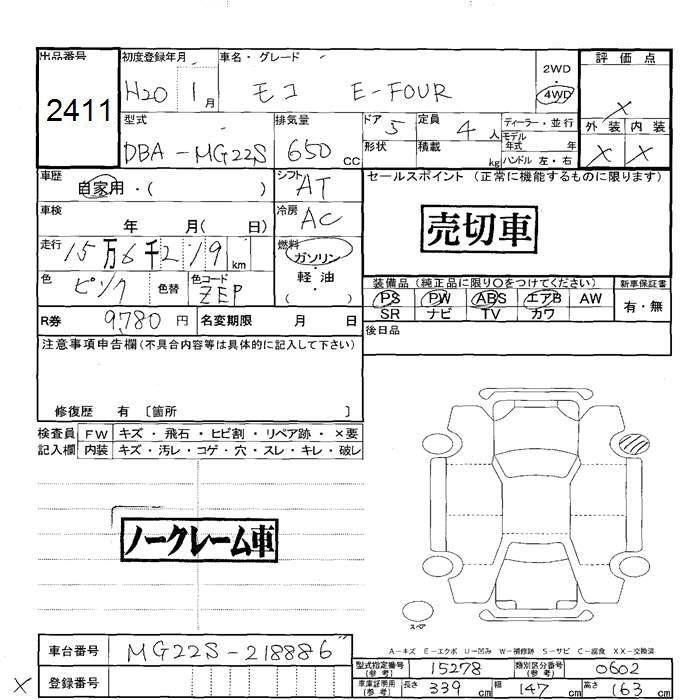 出品番号 初度登録年月 車名・グレード 2WD 評価点
2411 H20 1月 モコ E-FOUR 4WD X
型式 排気量 ドア 5 定員 4人 ディーラー・並行 外装 内装
DBA-MG22S 650cc 形状 積載 kg モデル年式 年 X X
ハンドル 左・右
車歴 自家用・( ) シフト AT セールスポイント(正常に機能するものに限ります)
車検 年 月( 日) 冷房 AC 売切車
走行 15万6千219km 燃料 ガソリン・軽油・( )
色 ピンク 色替 色コード ZEP 装備品(純正品に限り○をつけてください) 新車保証書
PS PW ABS エアB AW 有・無
SR ナビ TV カワ
R券 9,780円 名変期限 月 日 後日品
注意事項申告欄(不具合内容等は具体的に記入して下さい)
修復歴 有 〔箇所 〕
検査員 FW キズ・飛石・ヒビ割・リペア跡・×要
記入欄 内装 キズ・汚レ・コゲ・穴・スレ・キレ・破レ
ノークレーム車
スペア
A-キズ E-エクボ U-凹み W-補修跡 S-サビ C-腐食 XX-交換済
車台番号 MG22S-218886 型式指定番号(参考) 15278 類別区分番号(参考) 0602
X 登録番号 車庫証明用(参考) 長さ 339cm 幅 147cm 高さ 163cm